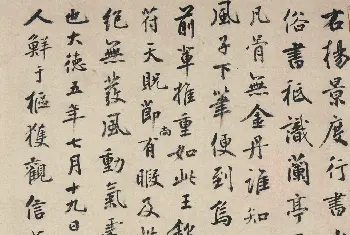 右楊景度行書
俗書祗識蘭亭
凡骨無金丹誰知
風子下筆便到烏
前輩推重如此王欽
符天貺節尚有暇及
紀無發風動氣
也大德五年七月十九日
人鮮于樞獲觀信